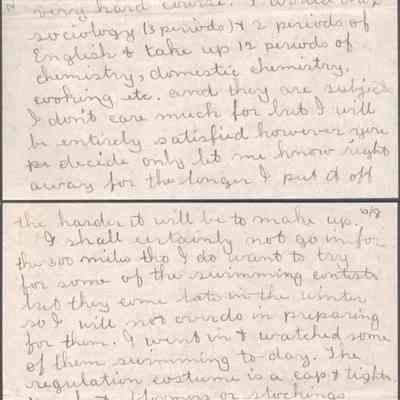 very hard course. I would
sociology (3 periods) & 2 periods of
English & take up 12 periods of
chemistry, domestic chemistry,
cooking etc. and they are subjec
I don't care much for but I will
be entirely satisfied however you
decide only let me know right
away for the longer I put it off
the harder it will be to make up. 6/8
I shall certainly not go in for
the 300 miles tho I do want to try
for some of the swimming contests
but they come late in the winter
so I will not overdo in preparing
for them. I went in & watched some
of them swimming to-day. The
regulation costume is a cap & tights
& bloomers or stockings